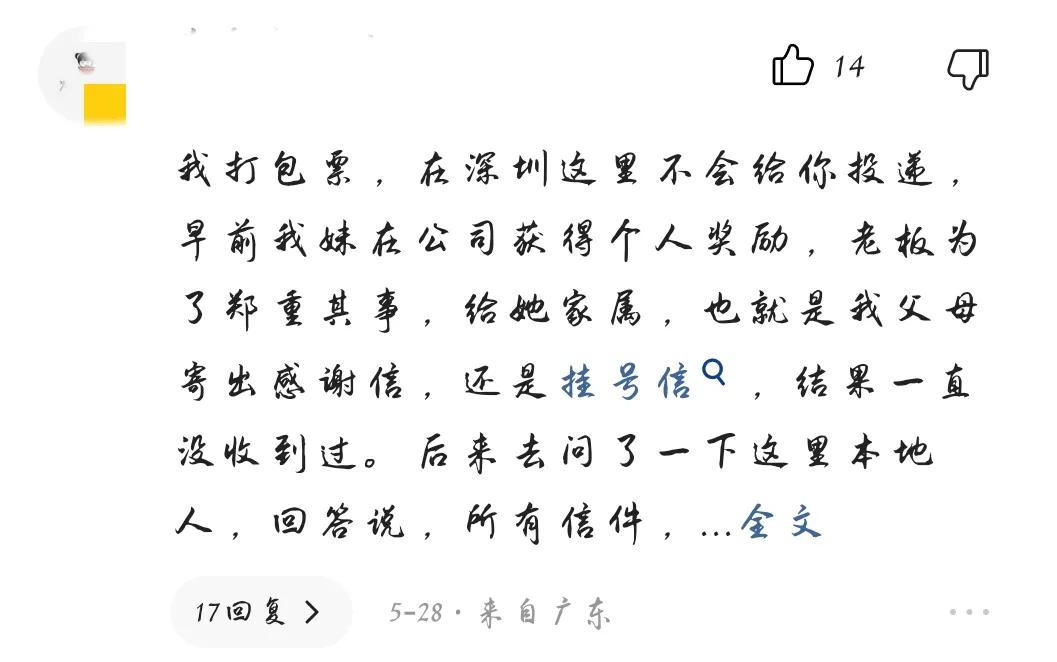 14
我打包票，在深圳这里不会给你投递，
早前我妹在公司获得个人奖励，老板为
了郑重其事，给她家属，也就是我父母
寄出感谢信，还是挂号信，结果一直
没收到过。后来去问了一下这里本地
人，回答说，所有信件，...全文
17回复
5-28·来自广东